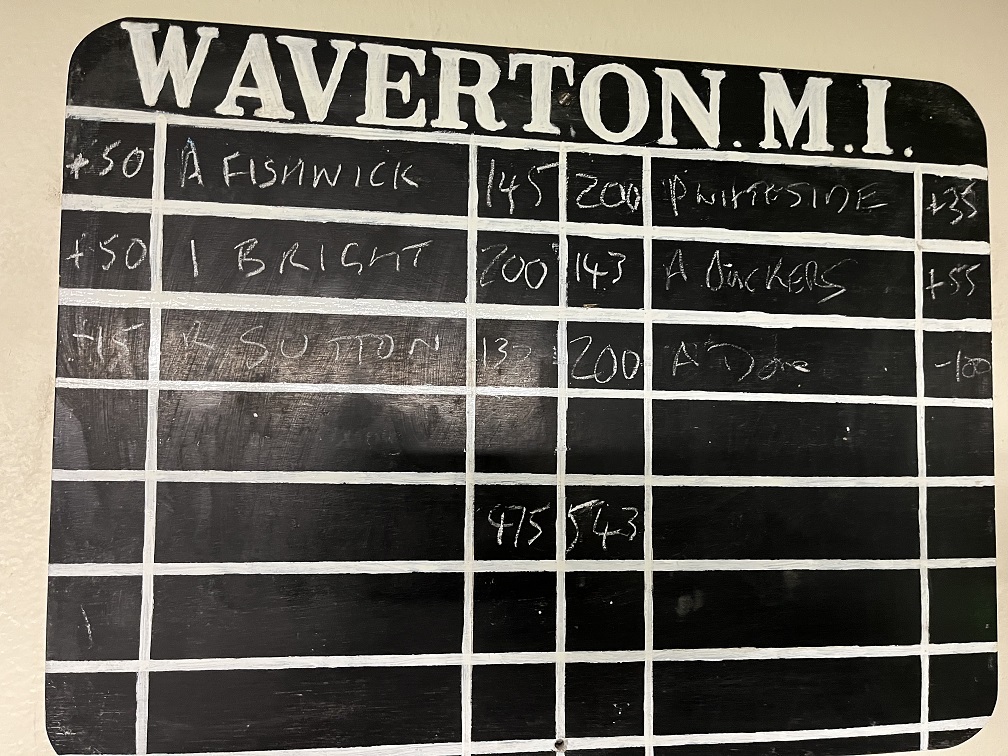 WAVERTON. M.I.
+50 A FISHWICK 145 200 P WHITESIDE +35
+50 I BRIGHT 200 143 A DUCKERS +55
+15 R SUTTON 200 A Dove -100
475 543